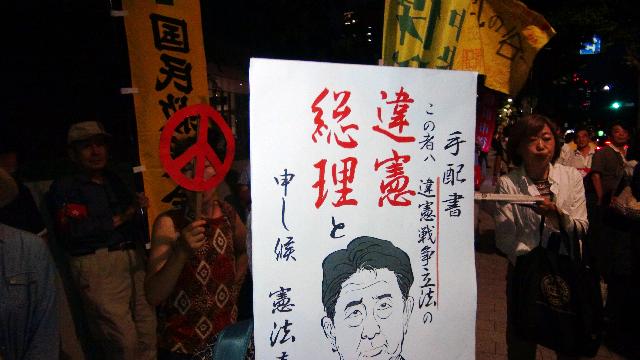 手配書
この者ハ 違憲戦争立法の
違憲
総理と
申し候 憲法を
国民